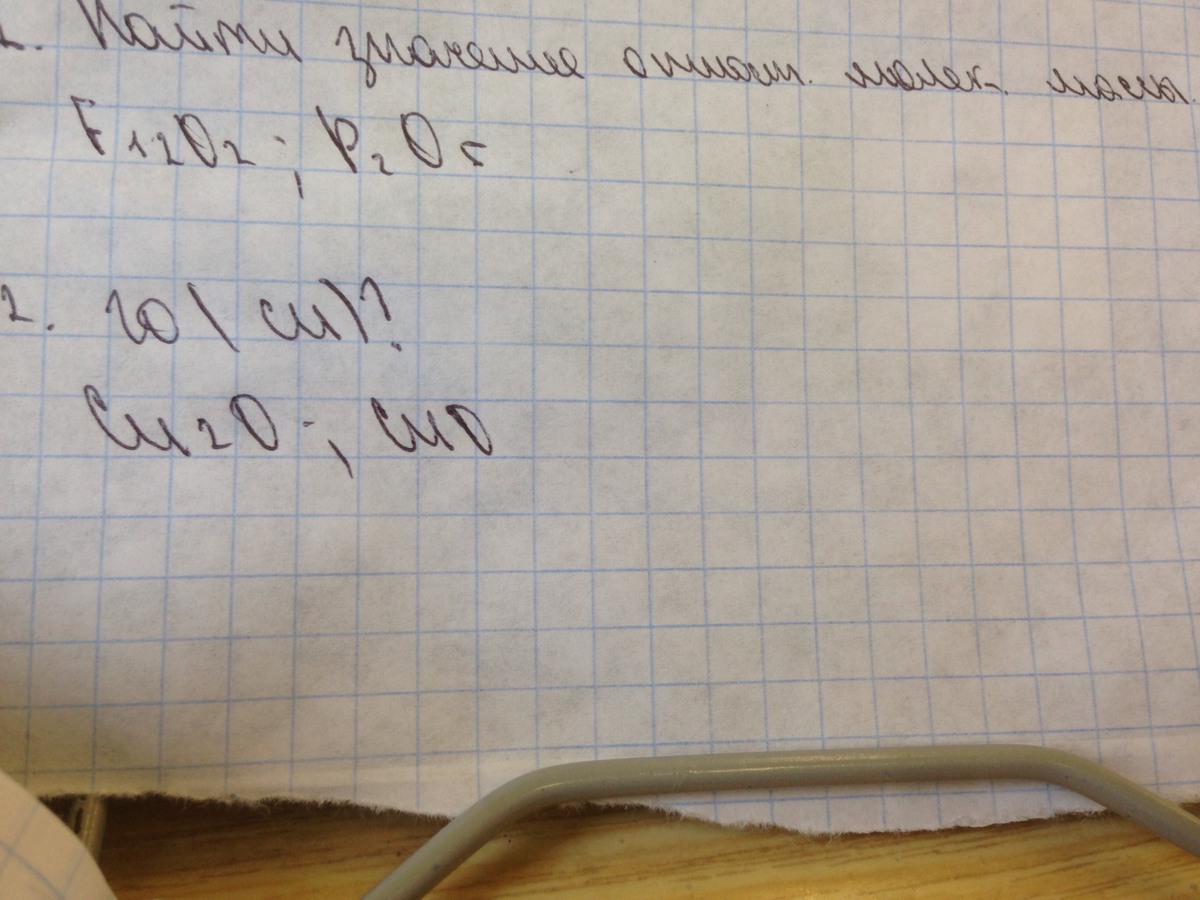 1. Найти значение относит. молек. массы.
F12O2 ; P2O5
2. ω(Cu)?
Cu2O ; CuO